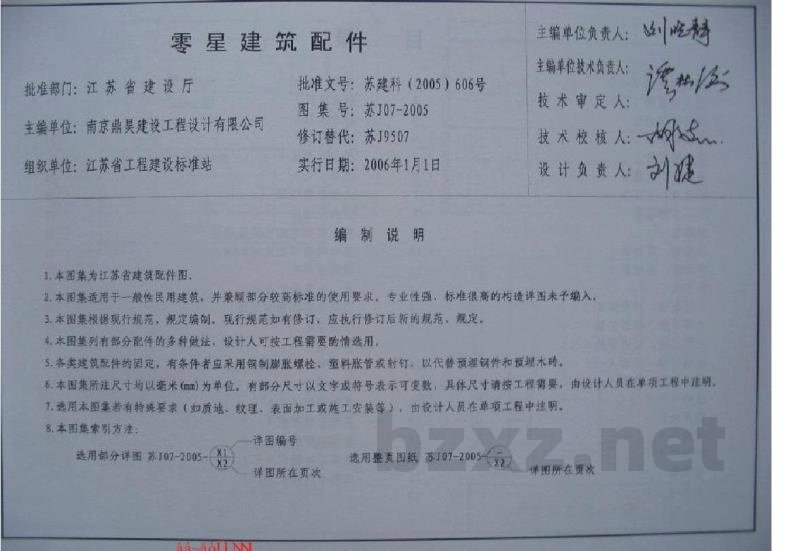 零星建筑配件
批准部门：江苏省建设厅
主编单位：南京鼎昊建设工程设计有限公司
组织单位：江苏省工程建设标准站
批准文号：苏建科（2005）606号
图集号：苏J07-2005
修订替代：苏J9507
实行日期：2006年1月1日
主编单位负责人：
主编单位技术负责人：
技术审定人：
技术校核人：
设计负责人：刘健
编制说明
1.本图集为江苏省建筑配件图．
2.本图集适用于一般性民用建筑，并兼顾部分较高标准的使用要求．专业性强，标准很高的构造详图未予编入．
3.本图集根据现行规范、规定编制．现行规范如有修订，应执行修订后新的规范、规定．
4.本图集列有部分配件的多种做法，设计人可按工程需要酌情选用．
5.各类建筑配件的固定，有条件者应采用钢制膨胀螺栓、塑料胀管或射钉，以代替预埋钢件和预埋木砖．
6.本图集所注尺寸均以毫米(mm)为单位，有部分尺寸以文字或符号表示可变数，具体尺寸请按工程需要，由设计人员在单项工程中注明．
7.选用本图集若有特殊要求（如质地、纹理、表面加工或施工安装等），由设计人员在单项工程中注明．
8.本图集索引方法：
选用部分详图 苏J07-2005- X1 X2
详图编号
详图所在页次
选用整页图纸 苏J07-2005- — X2
详图所在页次
bzxz.net